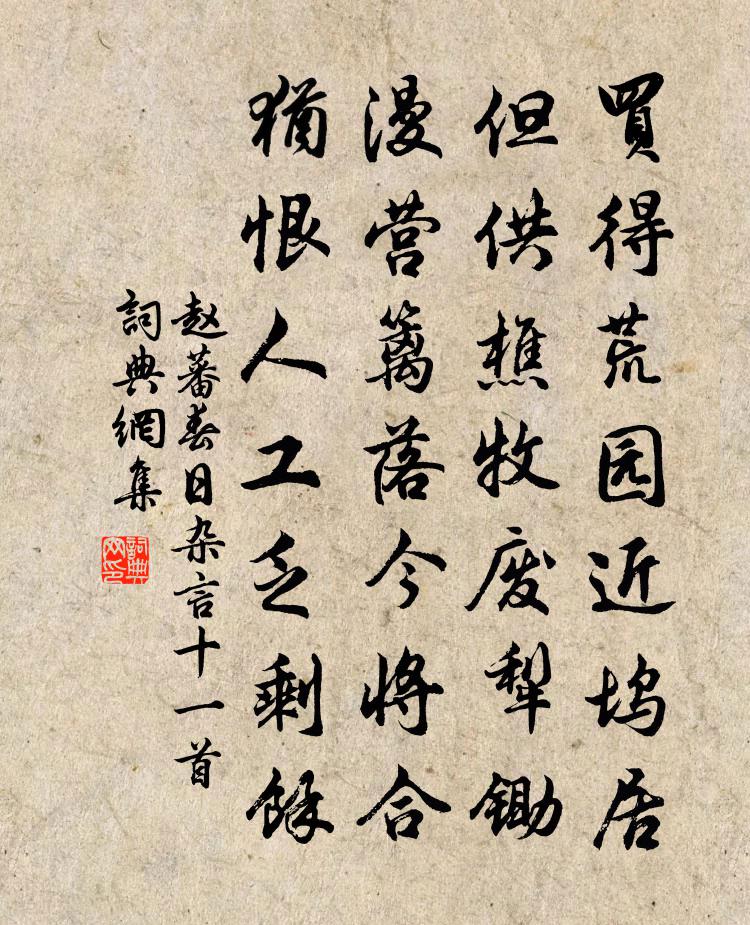 買得荒园近坞居
但供樵牧废犁锄
漫营篱落今将合
猶恨人工乏剩餘
赵蕃春日杂言十一首
詞典網集
詞典网印